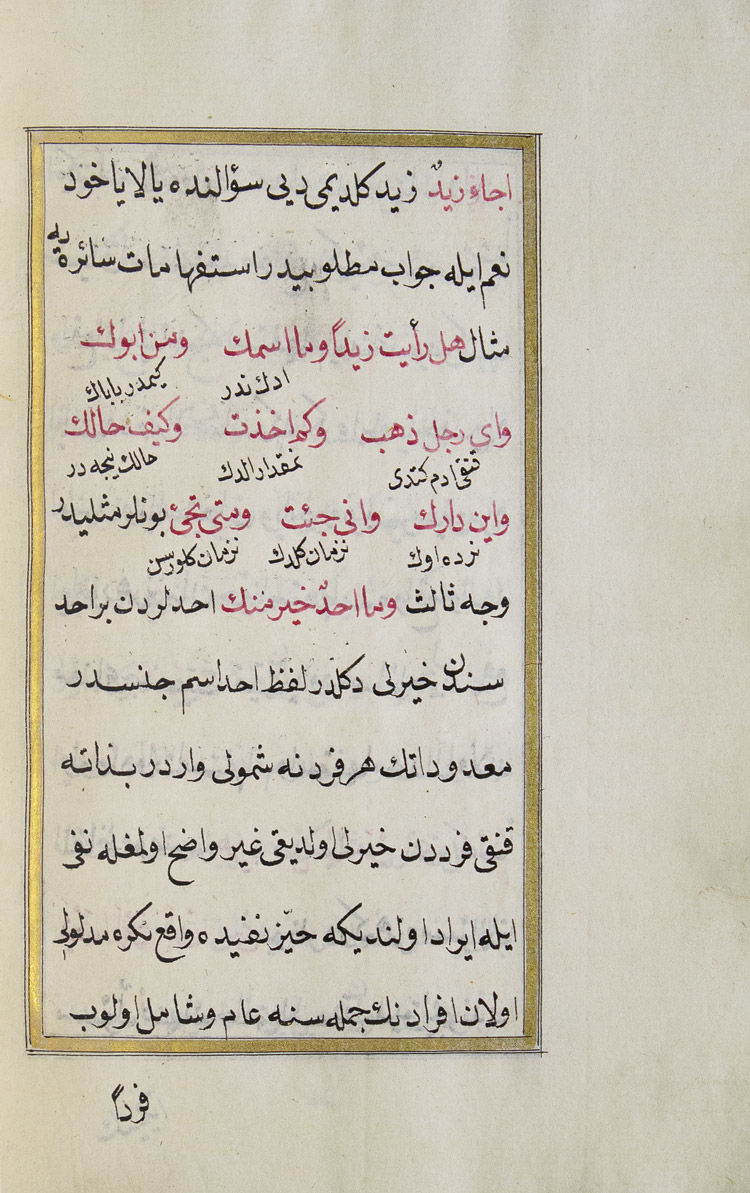 اجاء زيدٌ زيد كلديمى ديى سؤالنده يا لا ياخود
نعم ايله جواب مطلوبيدر استفهامات سائره يه
مثال هل رأيت زيدًا وما اسمك ومن ابوك
ادك ندر كيمدر باباك
واى رجل ذهب وكم اخذت وكيف حالك
قنقى ادم كتدى نمقدار الدك حالك نيجه در
واين دارك وانى جئت ومتى تجئ بونلر مثليدر
نرده اوك نزمان كلدك نزمان كلورسن
وجه ثالث وما احدٌ خير منك احدلردن بر احد
سندن خيرلى دكلدر لفظ احد اسم جنسدر
معدوداتك هر فردنه شمولى واردر بذاته
قنقى فرددن خيرلى اولديقى غير واضح اولمغله نفى
ايله ايراد اولنديكه حيّز نفيده واقع نكره مدلولى
اولان افرادنك جمله سنه عام وشامل اولوب
فردًا